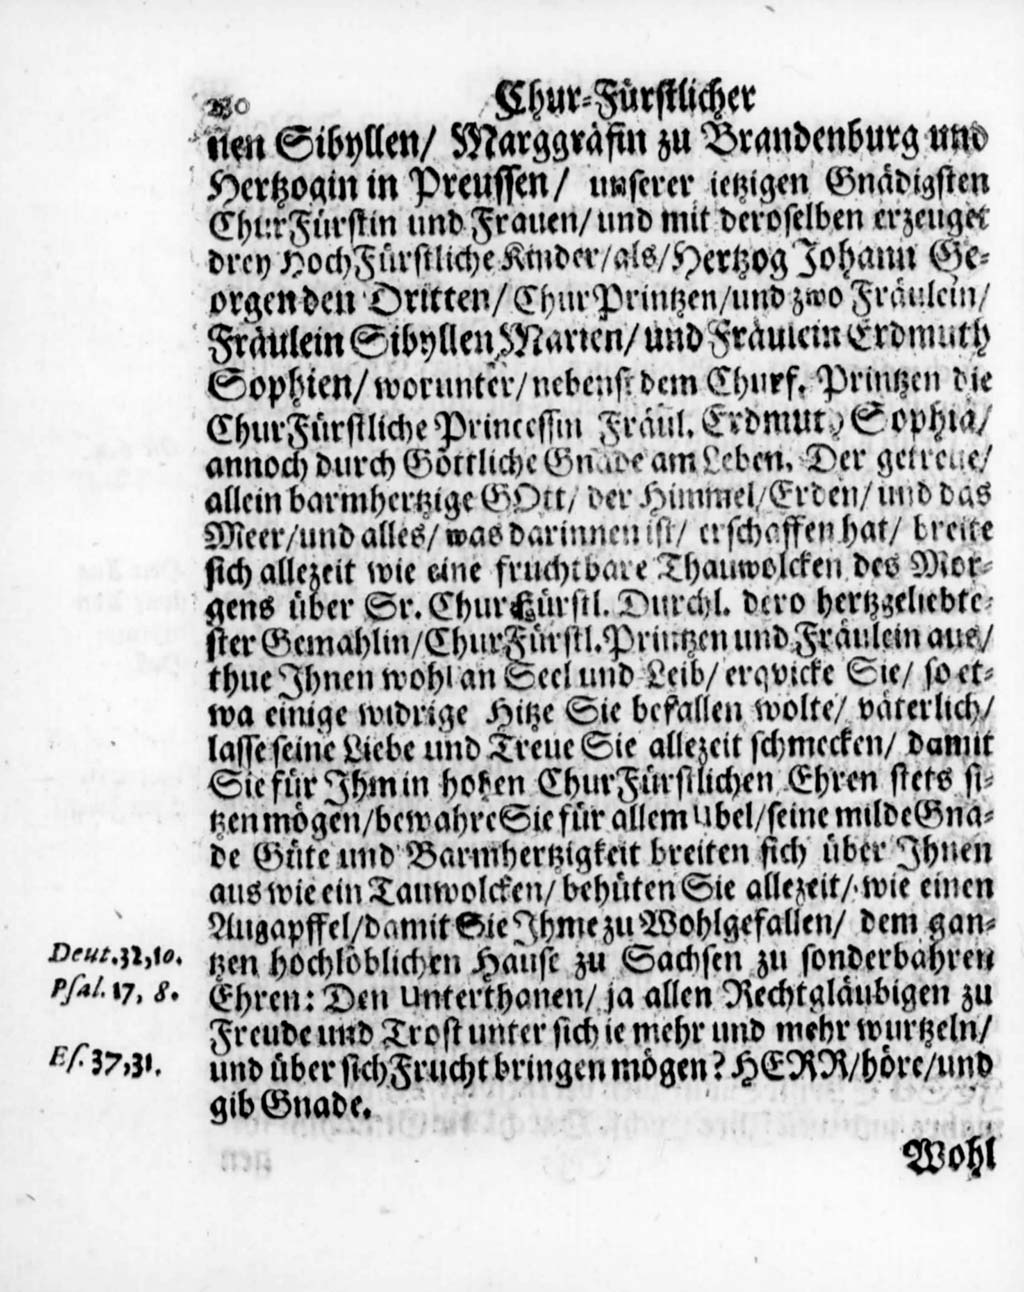 230 Chur-Fürstlicher
nen Sibyllen/ Marggräfin zu Brandenburg und
Hertzogin in Preussen/ unserer ietzigen Gnädigsten
ChurFürstin und Frauen/ und mit deroselben erzeuget
drey HochFürstliche Kinder/als/Hertzog Johann Ge-
orgen den Dritten/ ChurPrintzen/und zwo Fräulein/
Fräulein Sibyllen Marien/ und Fräulein Erdmuth
Sophien/ worunter/ nebenst dem Churf. Printzen die
ChurFürstliche Princessin Fräul. Erdmuth Sophia/
annoch durch Göttliche Gnade am Leben. Der getreue/
allein barmhertzige GOtt/ der Himmel/Erden/ und das
Meer/und alles/ was darinnen ist/ erschaffen hat/ breite
sich allezeit wie eine fruchtbare Thauwolcken des Mor-
gens über Sr. ChurFürstl. Durchl. dero hertzgeliebte-
ster Gemahlin/ChurFürstl. Printzen und Fräulein aus/
thue Ihnen wohl an Seel und Leib/ erqvicke Sie/ so et-
wa einige widrige Hitze Sie befallen wolte/ väterlich/
lasse seine Liebe und Treue Sie allezeit schmecken/ damit
Sie für Ihm in hohen ChurFürstlichen Ehren stets si-
tzen mögen/bewahre Sie für allem Ubel/seine milde Gna-
de Güte und Barmhertzigkeit breiten sich über Ihnen
aus wie ein Tauwolcken/ behüten Sie allezeit/ wie einen
Augapffel/damit Sie Ihme zu Wohlgefallen/ dem gan-
Deut.32,10. tzen hochlöblichen Hause zu Sachsen zu sonderbahren
Psal. 17, 8. Ehren: Den Unterthanen/ ja allen Rechtgläubigen zu
Freude und Trost unter sich ie mehr und mehr wurtzeln/
Es. 37,31. und über sich Frucht bringen mögen? HERR/höre/und
gib Gnade.
Wohl